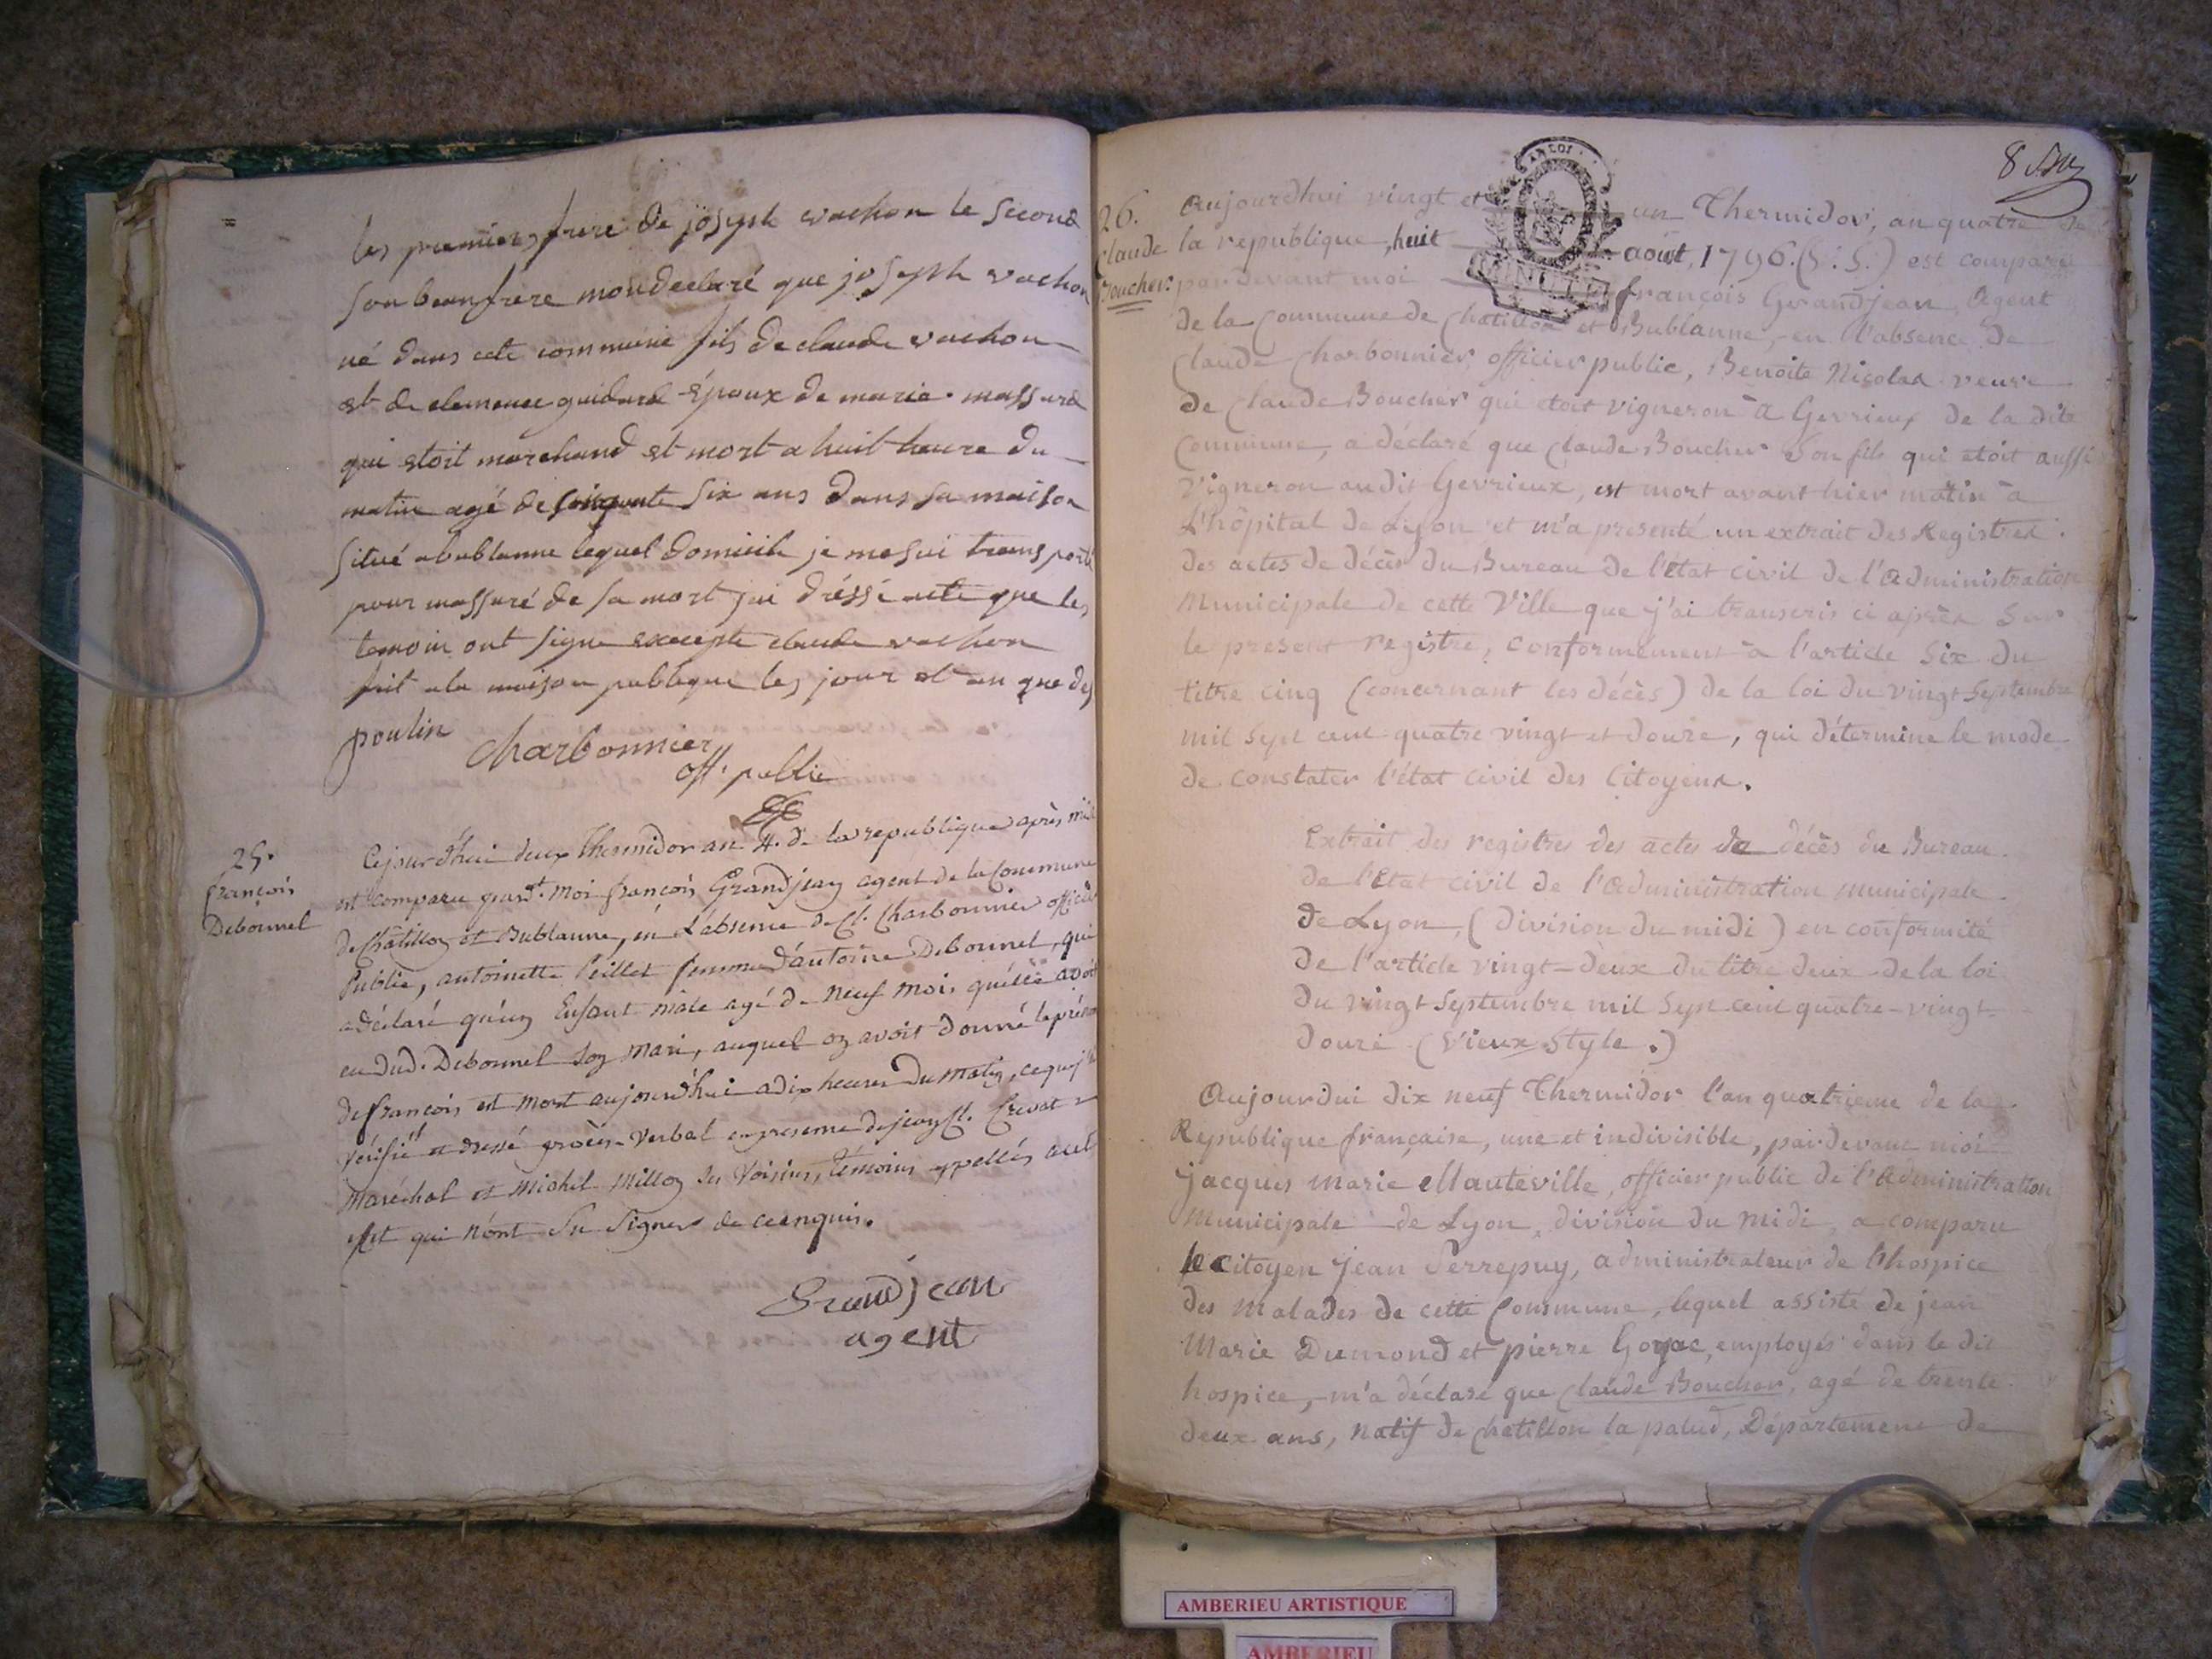 les premiers frere de joseph vachon le second
son beaufrere mon declaré que joseph vachon
né dans cete commune fils de claude vachon
et de clemence guidard époux de marie massard
qui etoit marchand et mort a huit heure du
matin agé de soixante six ans dans sa maison
situé a bublanne lequel domicile je me sui transporté
pour massuré de sa mort jai dréssé acte que les
temoin ont signe excepte claude vachon
fait a la maison publique les jour et an que des
poulin charbonnier
off. public
25.
françois
Debonnel
Cejourd'hui deux thermidor an 4. de la republique après midi
est comparu pardt. moi françois Grandjean agent de la Commune
de Châtillon et Bublanne, en l'absence de Cl. Charbonnier officier
Public, antoinette Peillet femme d'antoine Debonnel, qui
a déclaré qu'un Enfant mâle agé de neuf mois qu'elle avoit
eu dud. Debonnel son mari, auquel on avoit donné le prénom
de françois est mort aujourd'hui a dix heures du matin, ce que j'ai
vérifié et dressé procès-verbal en presence de jean Cl. Crevat
maréchal et michel millon ses voisins, témoins appellés
qui n'ont su signer de ce enquis.
Grandjean
agent
8
26.
Claude
Boucher.
Aujourdhui vingt et un Thermidor, an quatre de
la republique, huit aout, 1796. (V. S.) est comparu
par devant moi françois Grandjean Agent
de la Commune de Chatillon et Bublanne, en l'absence de
Claude Charbonnier officier public, Benoite Nicolas veuve
de Claude Boucher qui etoit vigneron à Gevrieux de la dite
Commune, a déclaré que Claude Boucher son fils qui etoit aussi
Vigneron audit Gevrieux, est mort avant hier matin à
L'hôpital de Lyon et m'a presenté un extrait des Registres
des actes de décès du Bureau de l'état civil de l'administration
Municipale de cette Ville que j'ai transcris ci après sur
le present registre, conformement à l'article Six du
titre cinq (concernant les décès) de la loi du vingt Septembre
mil sept cent quatre vingt et douze, qui détermine le mode
de constater l'état civil des Citoyens.
Extrait des registres des actes de décès du Bureau
de l'état civil de l'administration municipale
de Lyon, (division du midi) en conformité
de l'article vingt-deux du titre deux de la loi
du vingt Septembre mil Sept cent quatre-vingt
douze (Vieux Style.)
Aujourdui dix neuf Thermidor l'an quatrieme de la
Republique française, une et indivisible, pardevant moi
jacques marie Mauteville, officier public de l'administration
municipale de Lyon, division du midi, a comparu
le citoyen jean Perrepuy, administrateur de l'hospice
des malades de cette Commune, lequel assisté de jean
Marie Dumond et pierre Goyac, employés dans le dit
hospice, m'a déclaré que Claude Boucher, agé de trente
deux ans, natif de Chatillon la palud, Département de
AMBERIEU ARTISTIQUE
AMBERIEU